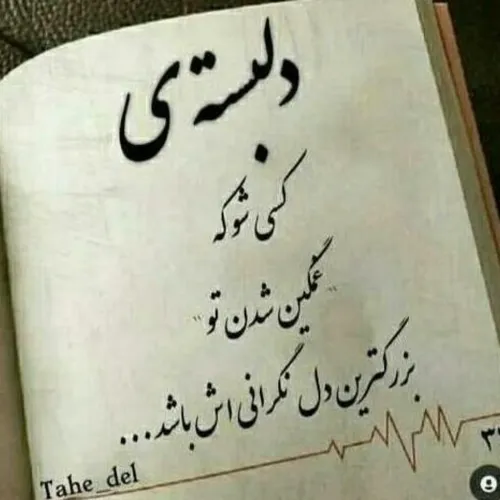 دلبسته‌ی
کسی شو که
"غمگین شدن تو"
بزرگترین دل نگرانی اش باشد...
Tahe_del